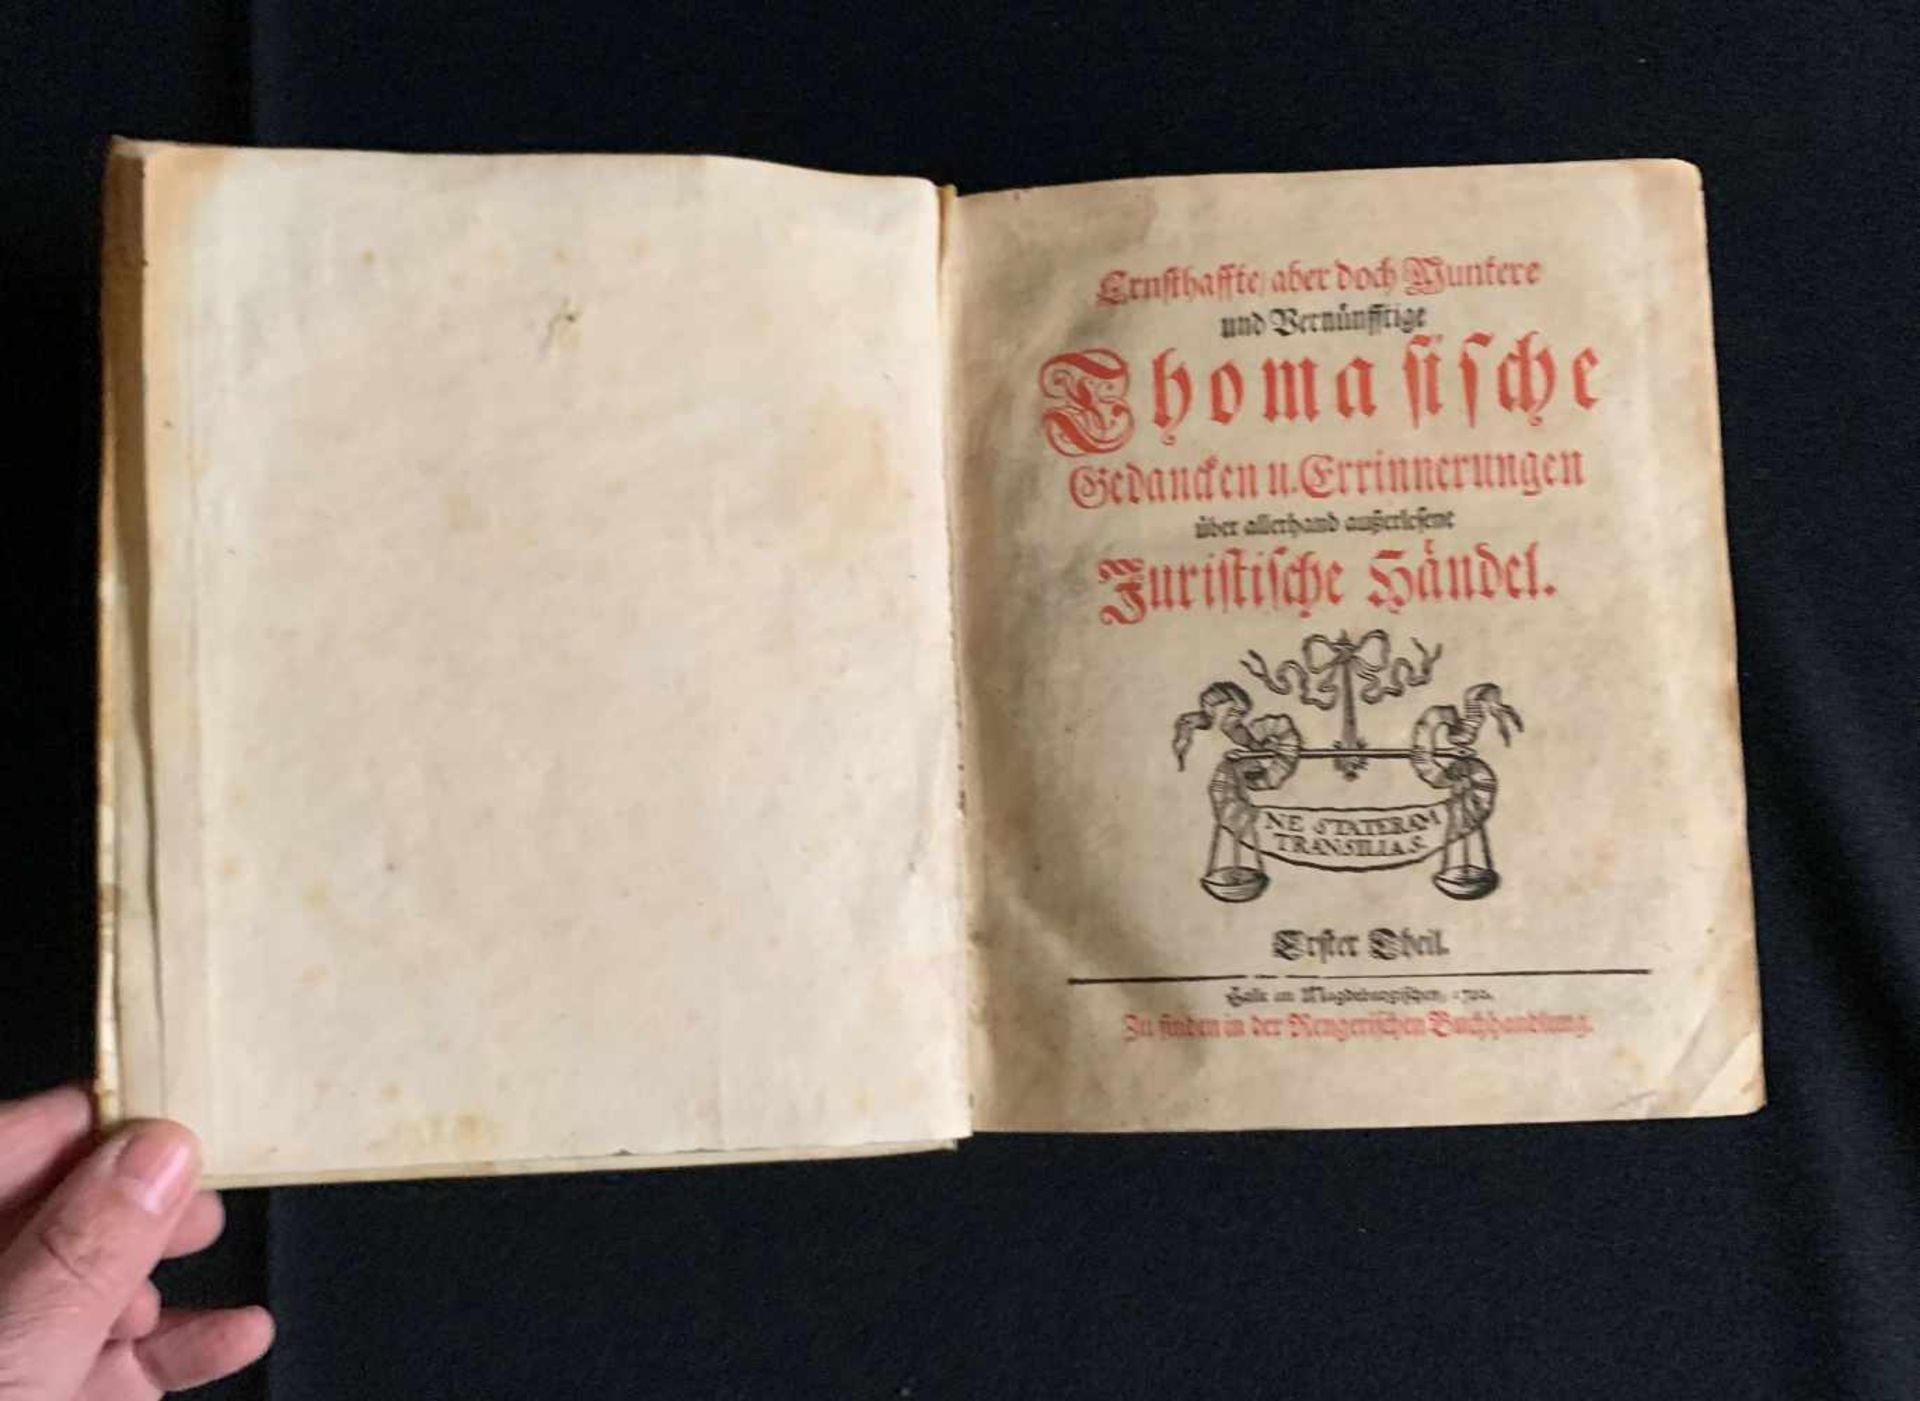 Ernsthaffte / aber doch Muntere
und Vernünfftige
Thomasische
Gedancken u. Errinnerungen
über allerhand außerlesene
Juristische Händel.
NE STATERAM
TRANSILIAS.
Erster Theil.
Halle im Magdeburgischen, 1720.
Zu finden in der Rengerischen Buchhandlung.